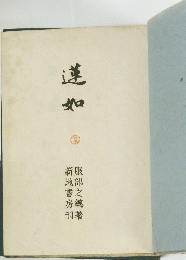 蓮如
服部之總著
新地書房刊